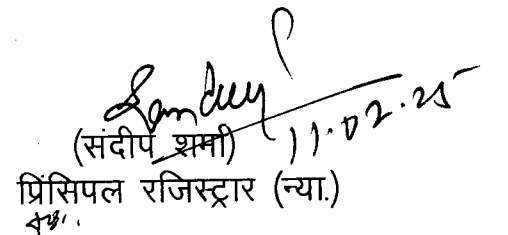 Sandeep
11.02.25
(संदीप शर्मा)
प्रिंसिपल रजिस्ट्रार (न्या.)